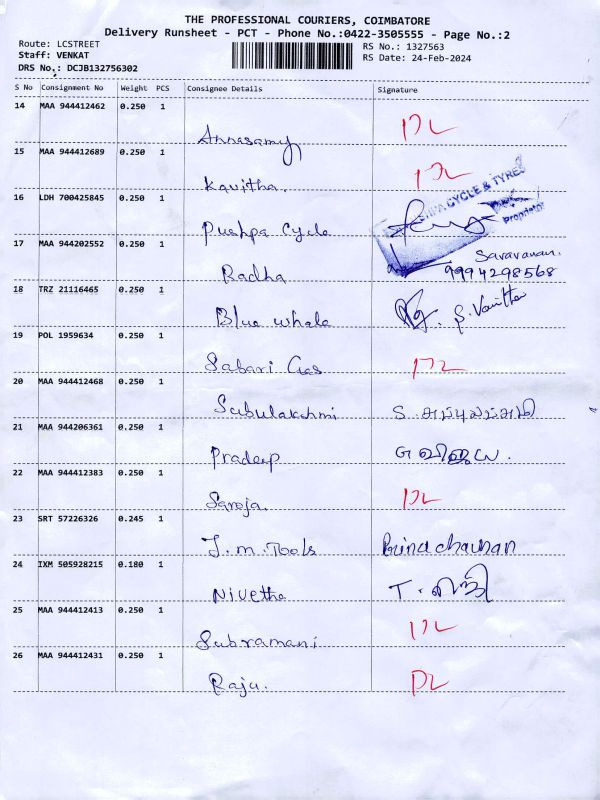 THE PROFESSIONAL COURIERS, COIMBATORE
Delivery Runsheet - PCT - Phone No.:0422-3505555 - Page No.:2
Route: LCSTREET
RS No.: 1327563
Staff: VENKAT
RS Date: 24-Feb-2024
DRS No.: DCJB132756302
S No Consignment No Weight PCS Consignee Details Signature
14 MAA 944412462 0.250 1
Annasamy DL
15 MAA 944412689 0.250 1
Kavitha. DL
16 LDH 700425845 0.250 1
CYCLE & TYRES
Proprietor
Pushpa Cycle
17 MAA 944202552 0.250 1
Saravanan.
Radha 9994298568
18 TRZ 21116465 0.250 1
Blue whale S. Vanitha
19 POL 1959634 0.250 1
Sabari Gas DL
20 MAA 944412468 0.250 1
Subulakshmi S.
21 MAA 944206361 0.250 1
Pradeep G
22 MAA 944412383 0.250 1
Saroja. DL
23 SRT 57226326 0.245 1
J.m.Tools
24 IXM 505928215 0.180 1
Nivetha T.
25 MAA 944412413 0.250 1
Subramani DL
26 MAA 944412431 0.250 1
Raju. DL